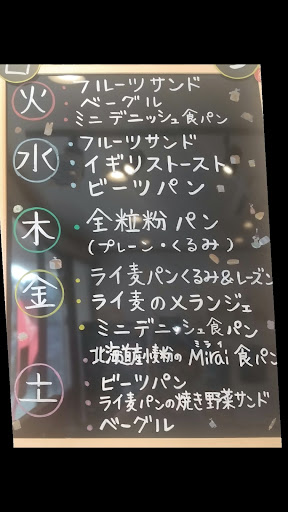 火
・フルーツサンド
・ベーグル
・ミニデニッシュ食パン
水
・フルーツサンド
・イギリストースト
・ビーツパン
木
・全粒粉パン
(プレーン・くるみ)
金
・ライ麦パンくるみ&レーズン
・ライ麦のメランジェ
・ミニデニッシュ食パン
・北海道産小麦粉のMirai食パン
ミライ
土
・ビーツパン
・ライ麦パンの焼き野菜サンド
・ベーグル